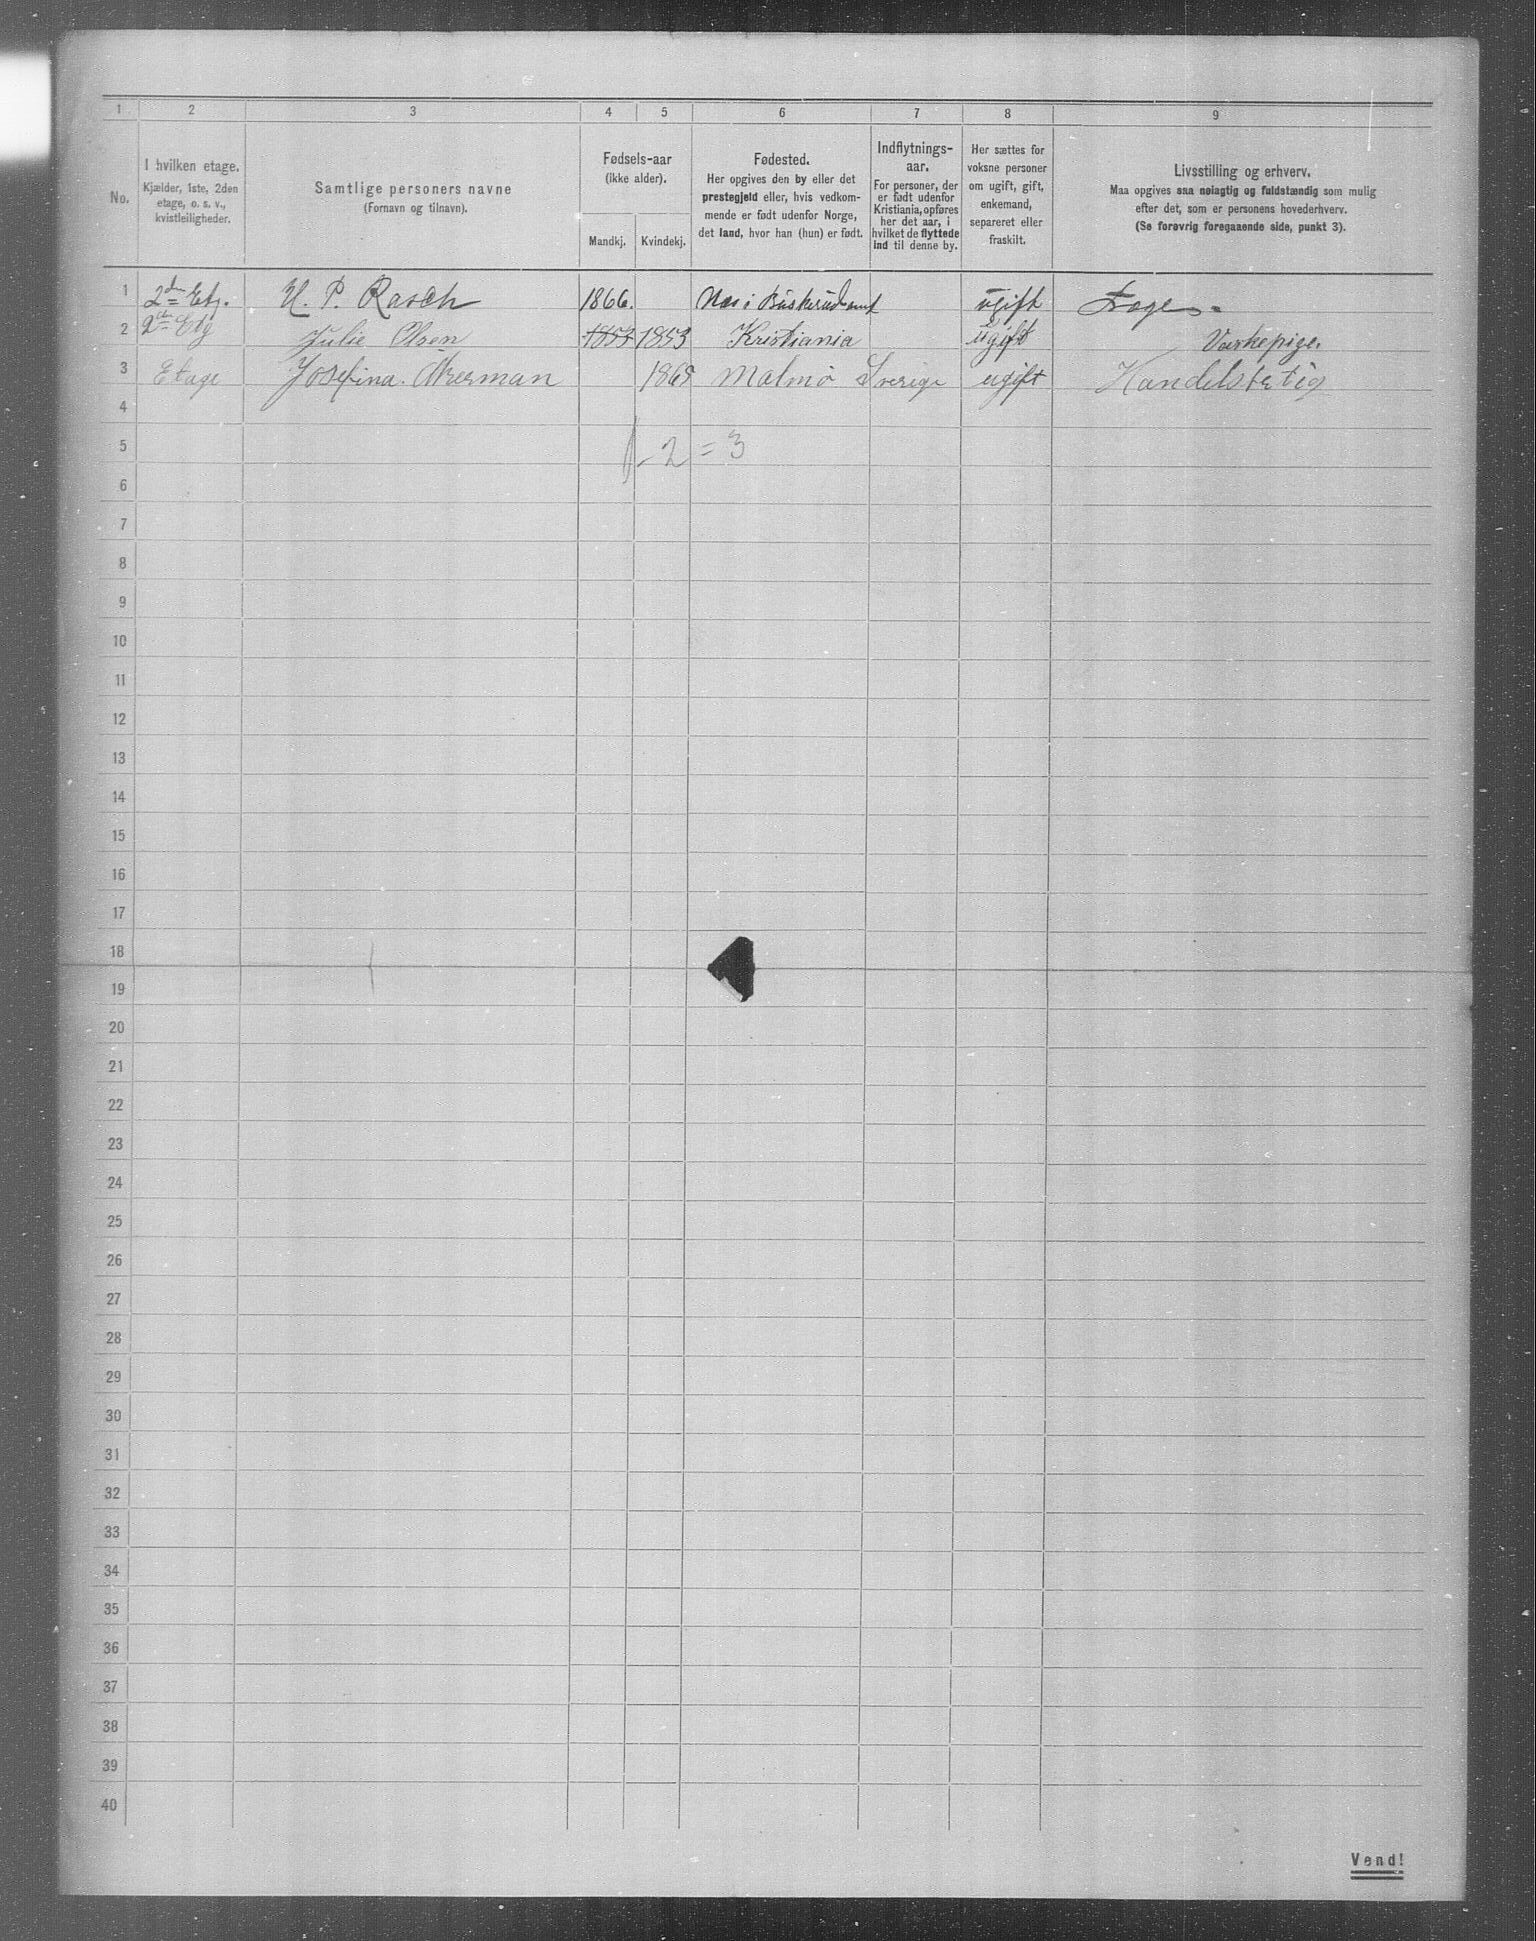 1 2 3 4 5 6 7 8 9
No.
I hvilken etage.
Kjælder, 1ste, 2den
etage, o. s. v.,
kvistleiligheder.
Samtlige personers navne
(Fornavn og tilnavn).
Fødsels-aar
(ikke alder).
Mandkj. Kvindekj.
Fødested.
Her opgives den by eller det
prestegjeld eller, hvis vedkom-
mende er født udenfor Norge,
det land, hvor han (hun) er født.
Indflytnings-
aar.
For personer, der
er født udenfor
Kristiania, opføres
her det aar, i
hvilket de flyttede
ind til denne by.
Her sættes for
voksne personer
om ugift, gift,
enkemand,
separeret eller
fraskilt.
Livsstilling og erhverv.
Maa opgives saa nøiagtig og fuldstændig som mulig
efter det, som er personens hovederhverv.
(Se forøvrig foregaaende side, punkt 3).
1 2den Etg. P. Rasch 1866. Nes i Buskerud amt ugift
2 2den Etg Julie Olsen 1853 1853 Kristiania ugift Vaskepige.
3 Etage Josefina Åkerman Malmø Sverige ugift
4
5 1 - 2 = 3
6
7
8
9
10
11
12
13
14
15
16
17
18
19
20
21
22
23
24
25
26
27
28
29
30
31
32
33
34
35
36
37
38
39
40
Vend!